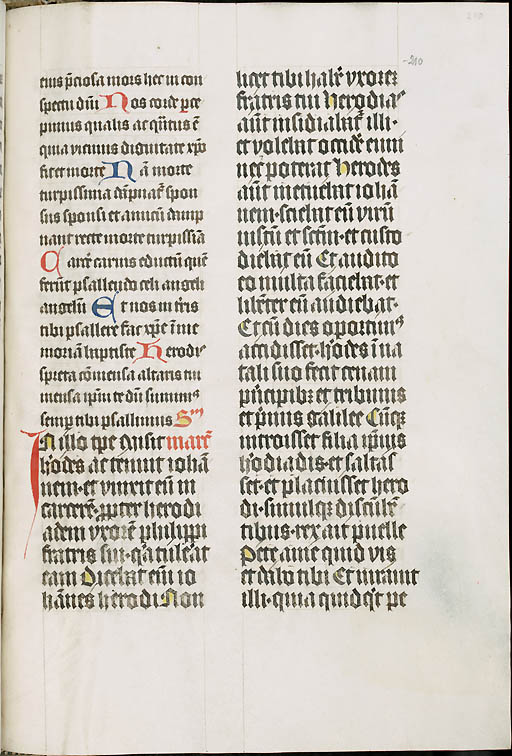 210
eius p̄ciosa mors hec in con
spectu dn̄i Nos corde p̲ce
pimus qualis ac qn̄tus ē
quia vicinus dignitate xp̄o
fit et morte Nā morte
turpissima dāpnat᷑ spon
sus sponsi et amicū damp
nant recte morte turpissīa
Carceˀ carnis eductū quē
ferūt psallendo celi angeli
angelū Et nos in tˀris
tibi psallere fac xp̄e ī me
moriā baptiste Herodiˢ
spreta cōmensa altaris tui
mensa ip̄m te dn̄ sumimˀ
semp̲ tibi psallimus Sᵐ
In illo tp̄e misit marcˀ
h̓odes ac tenuit iohā
nem · et vinxit eū in
carcere · p̲pter herodi
adem vxorē philippi
fratris sui · q̓a tulēat
eam Dicebat eīm io
hānes herodi Non
licet tibi habēˀ vxorē
fratris tui Herodiaˢ
aūt insidiabat᷑ illi ·
et volebat occidēˀ eum
nec poterat Herodes
aūt metuebat iohā
nem · sciebat eū virū
iustū et sc̄m · et custo
diebat eū Et audito
eo multa faciebat · et
libēter eū audiebat ·
Et cū dies oportunꝰ
accidisset · h̓odes ī na
tali suo fecit cenam
pͥncipibꝫ et tribunis
et pͥmis galilee Cūqꝫ
introisset filia ip̄ius
h̓odiadis · et saltas
set · et placuisset hero
di · simulqꝫ discūbē
tibus · rex ait puelle
Pete a me quid vis
et dabo tibi Et iurauit
illi · quia quid q̓d pe